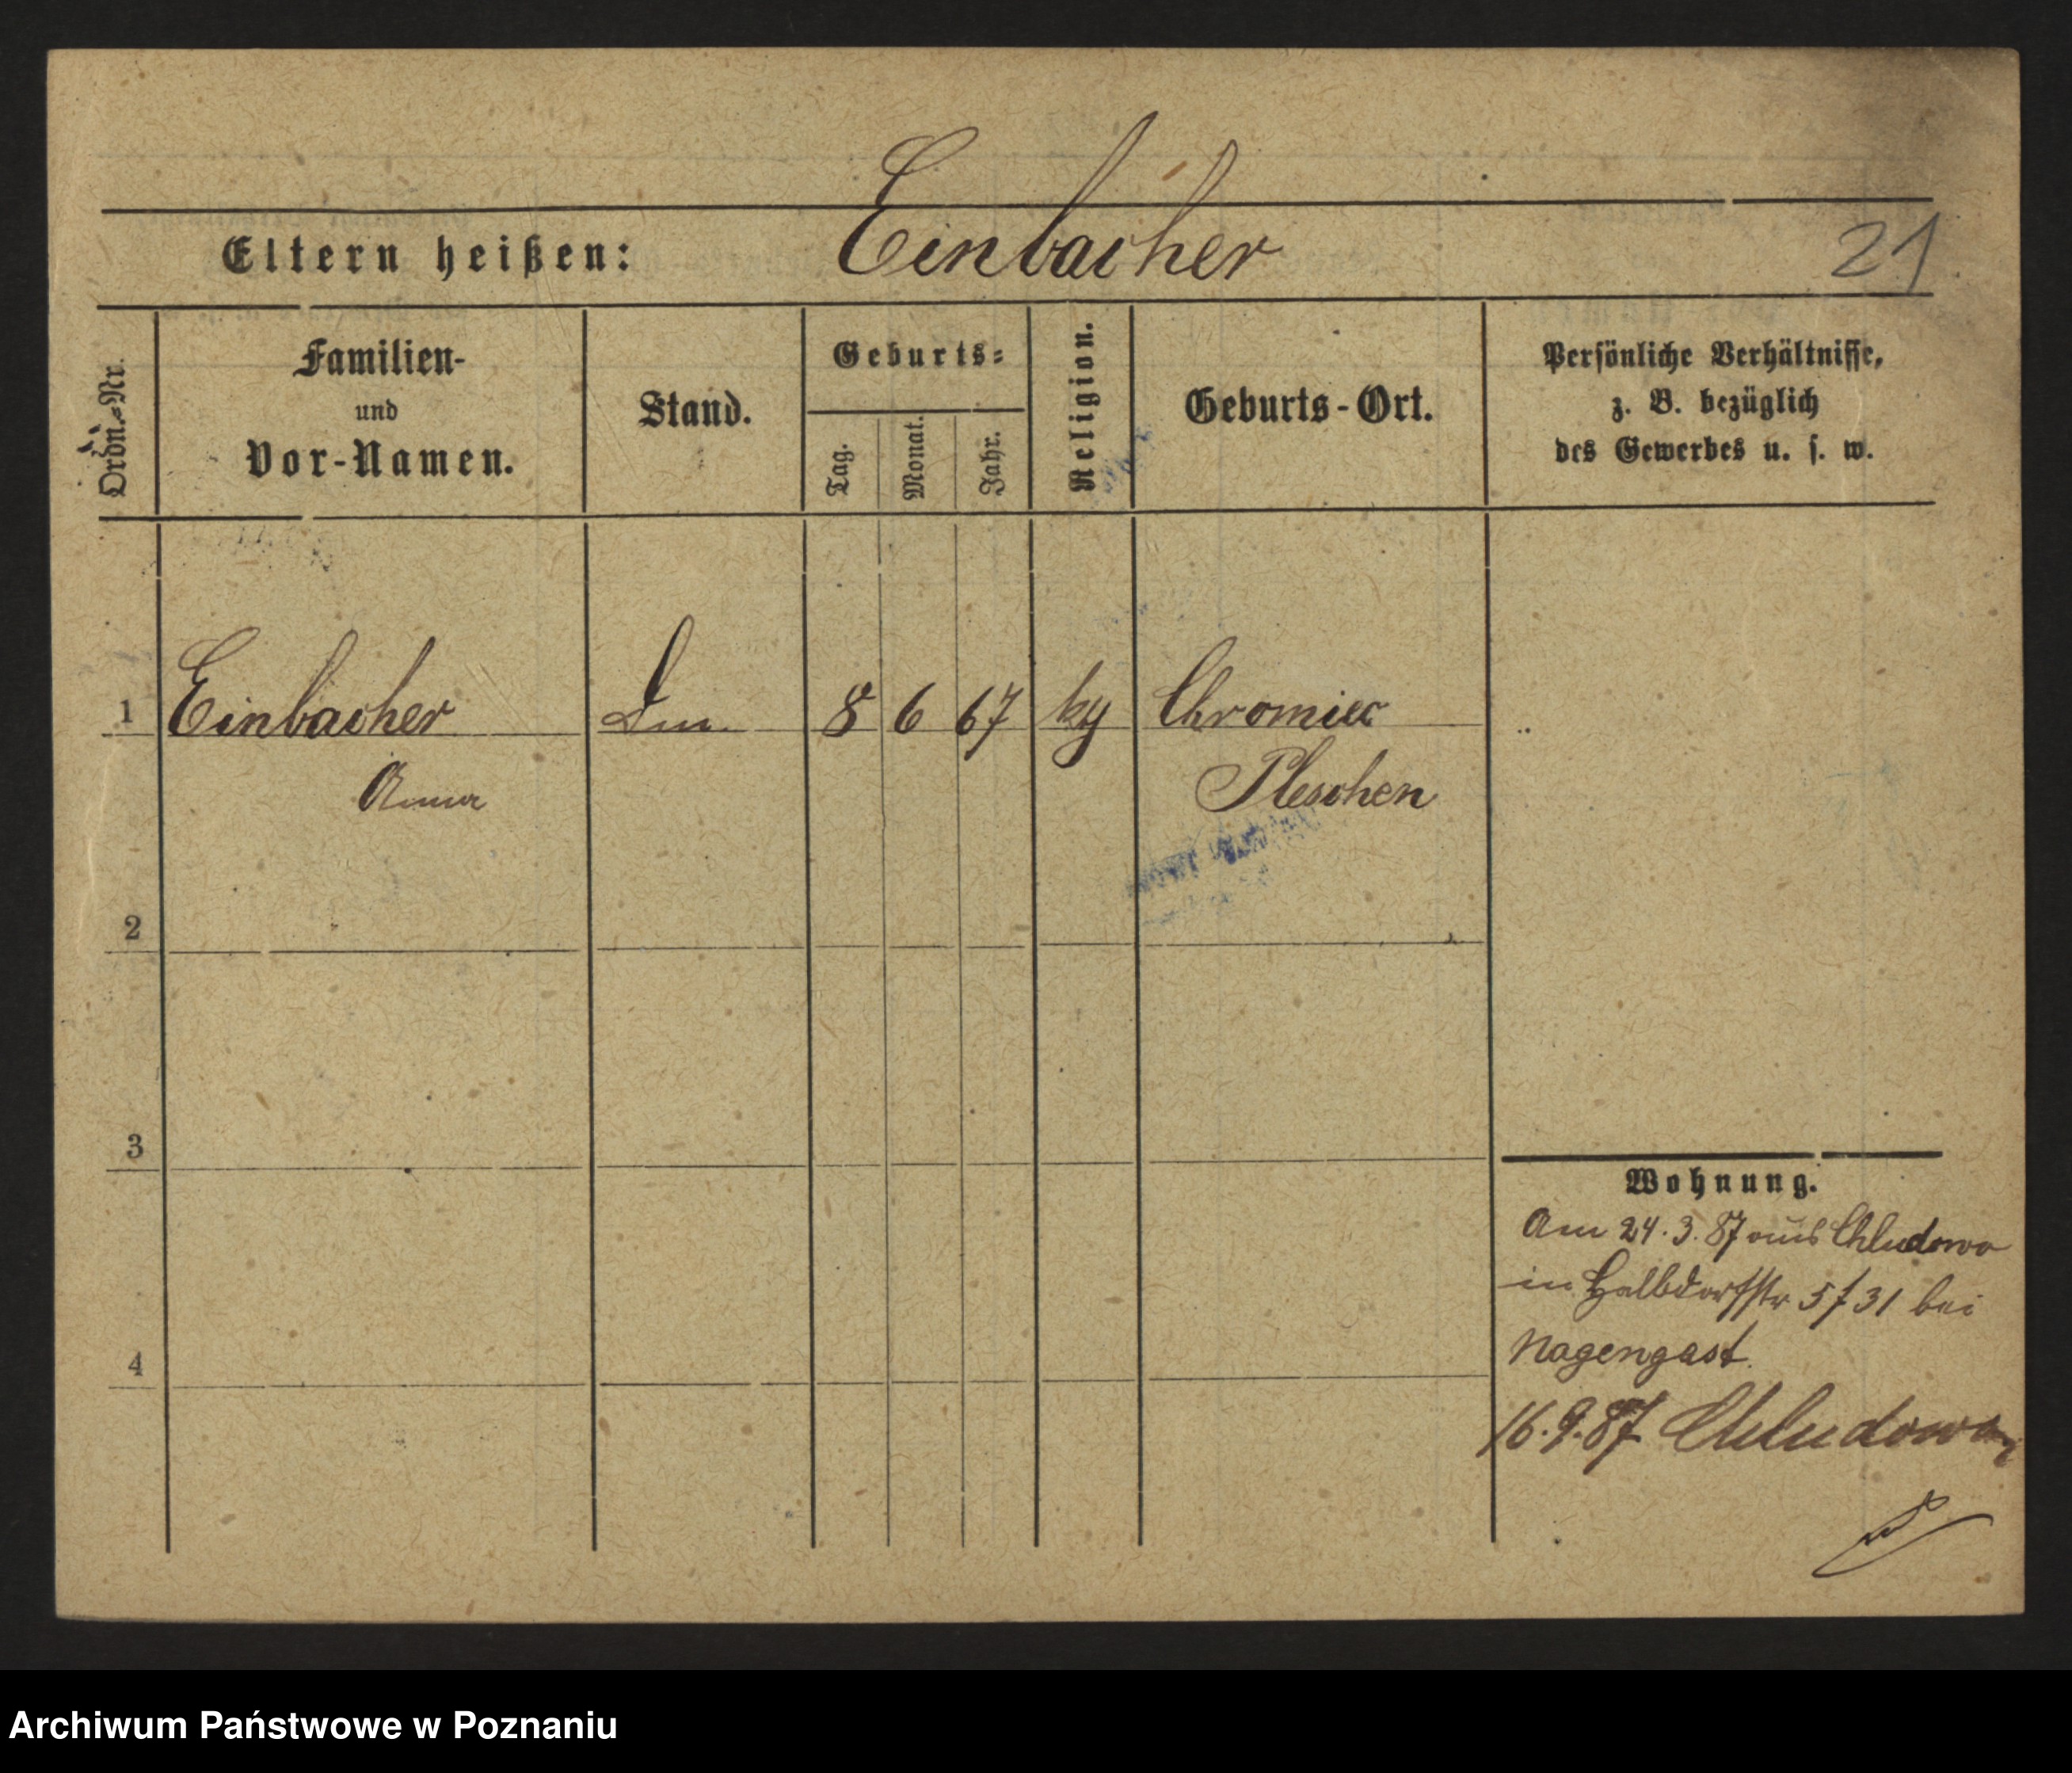 Einbacher
Eltern heißen:
21
Ordn.=Nr.
Familien-
und
Vor-Namen.
Stand.
Geburts=
Tag.
Monat.
Jahr.
Religion.
Geburts-Ort.
Persönliche Verhältnisse,
z. B. bezüglich
des Gewerbes u. s. w.
1 Einbacher 8 6 67 Chromiec
Anna Pleschen
2
3
4
Wohnung.
Am 24.3.87 aus Chludowo
in Halbdorfstr 31 bei
Nagengast.
16.9.87 Chludowo
Archiwum Państwowe w Poznaniu